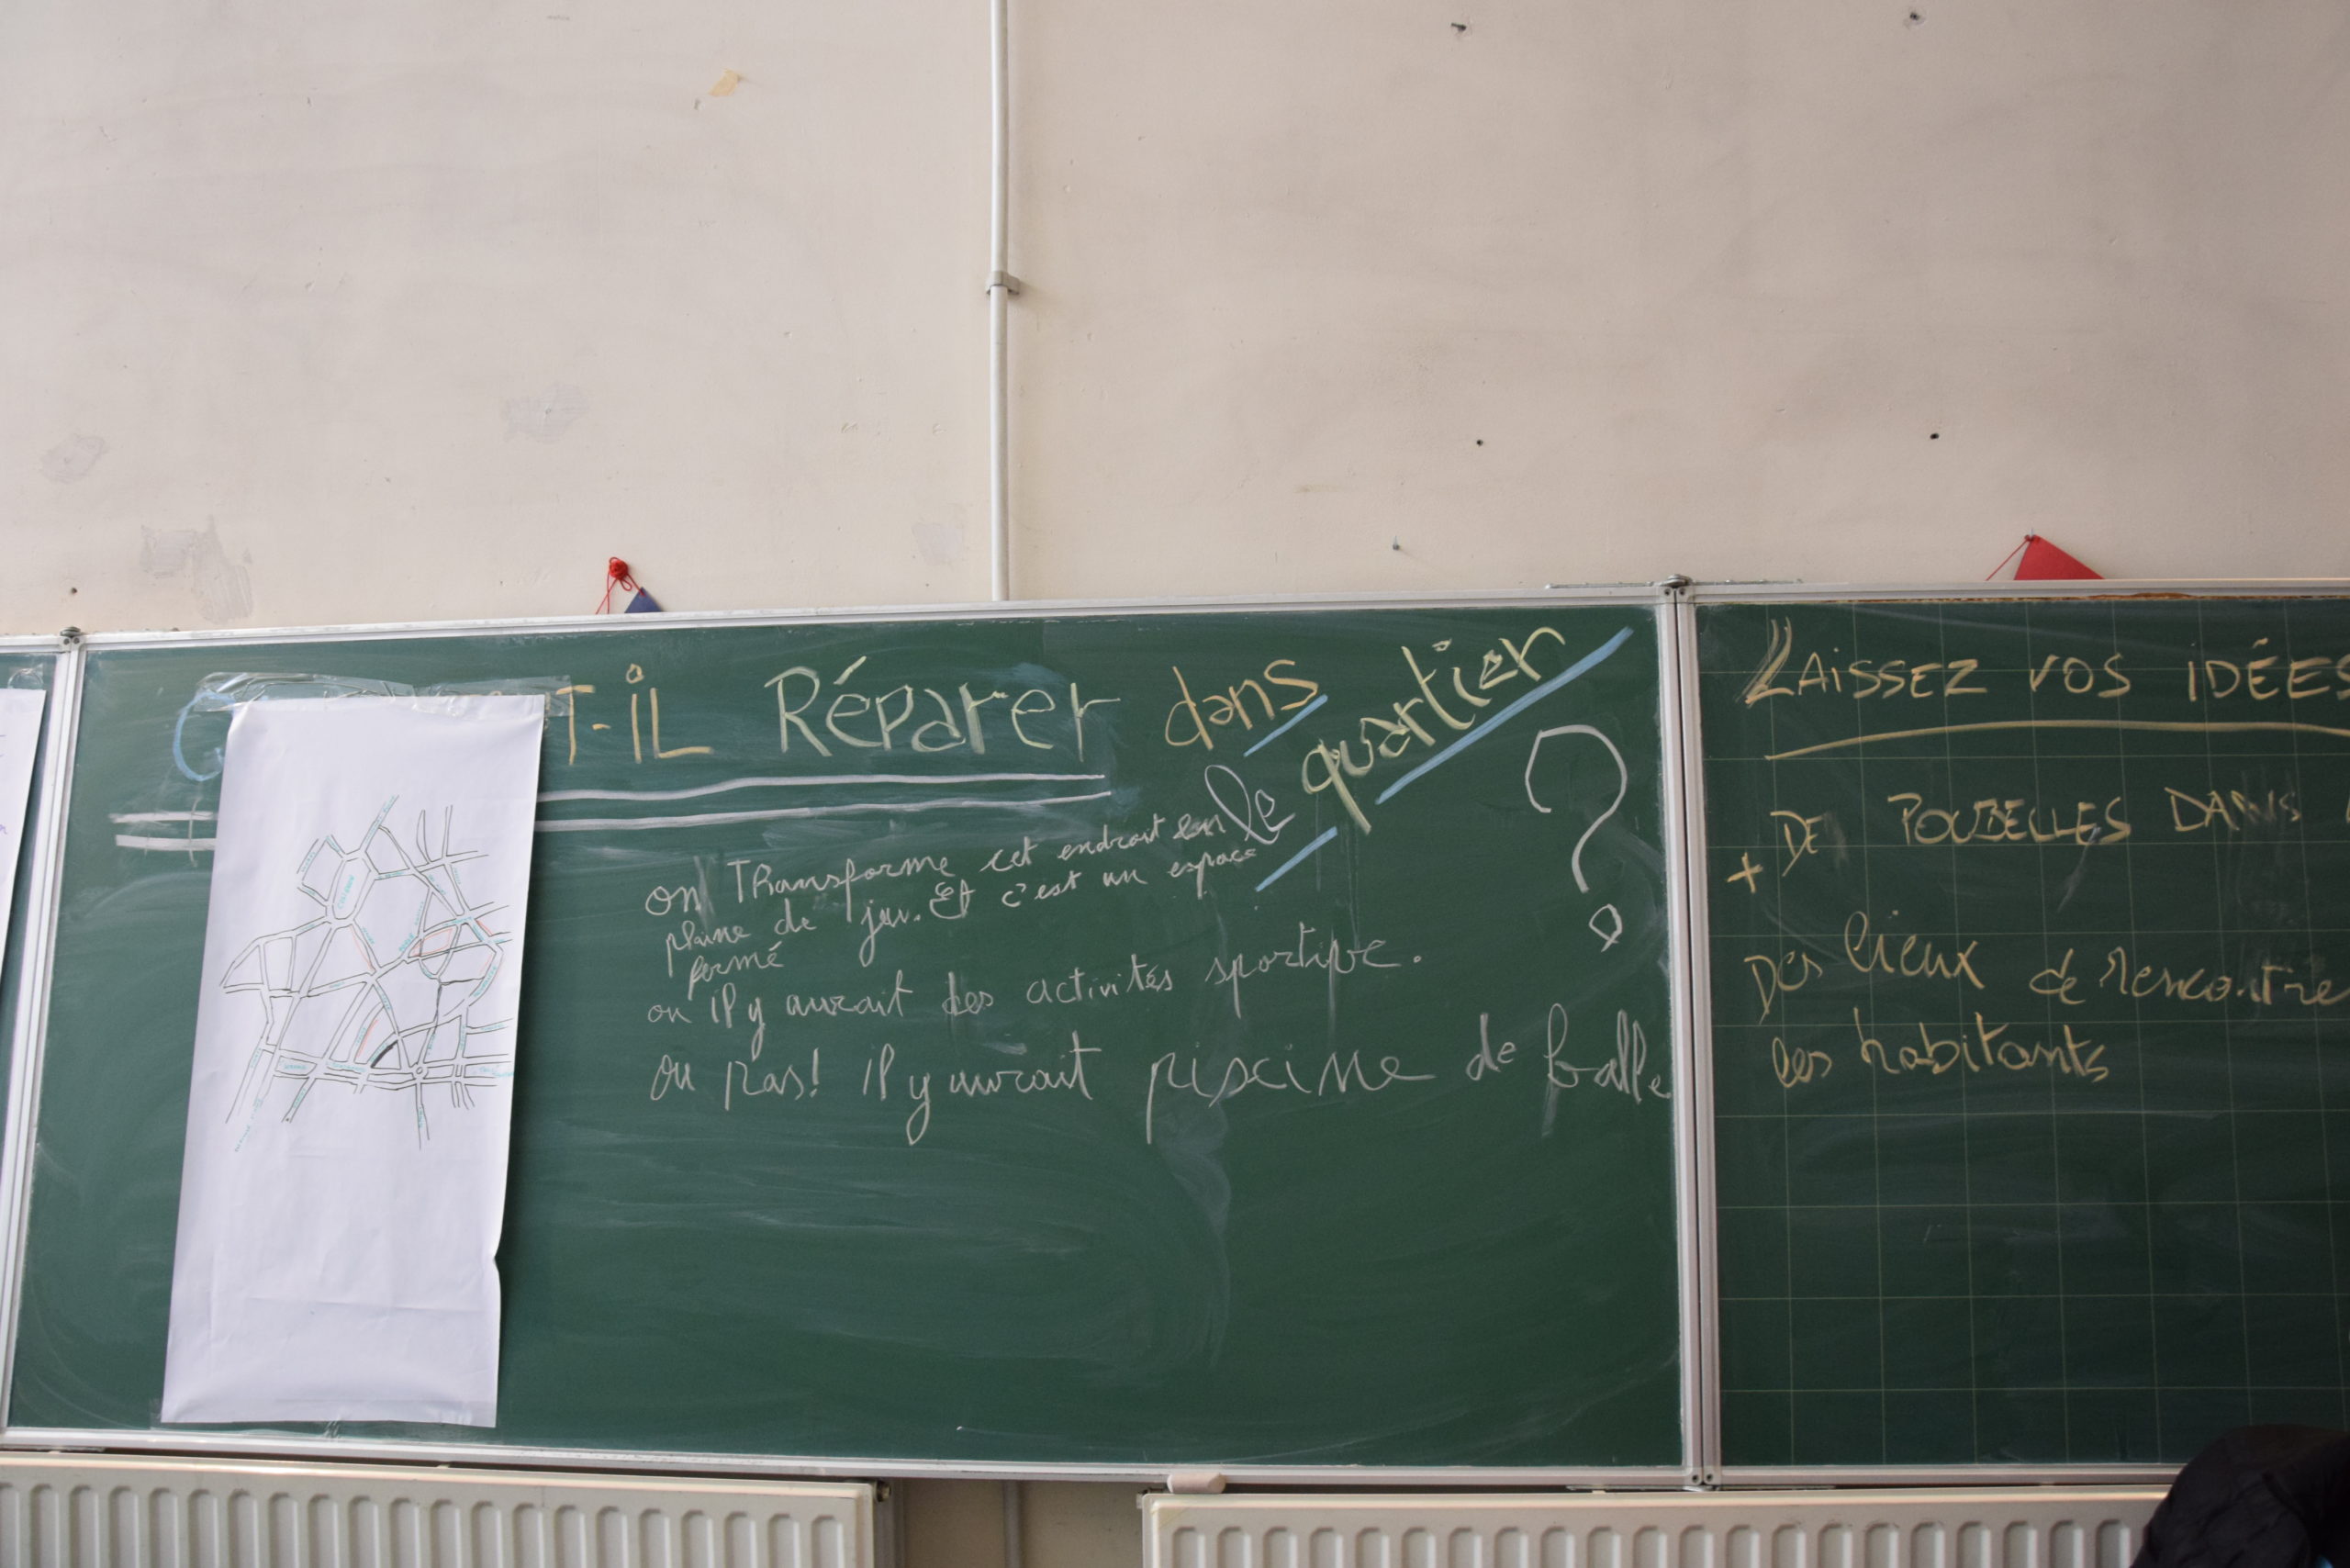 T-IL Réparer dans
le quartier ?
on Transforme cet endroit en
plaine de jeu. Et c'est un espace
fermé
ou il y aurait des activités sportive.
ou pas! il y aurait piscine de balle
LAISSEZ VOS IDÉES
+ DE POUBELLES DANS
Des lieux de rencontre
les habitants